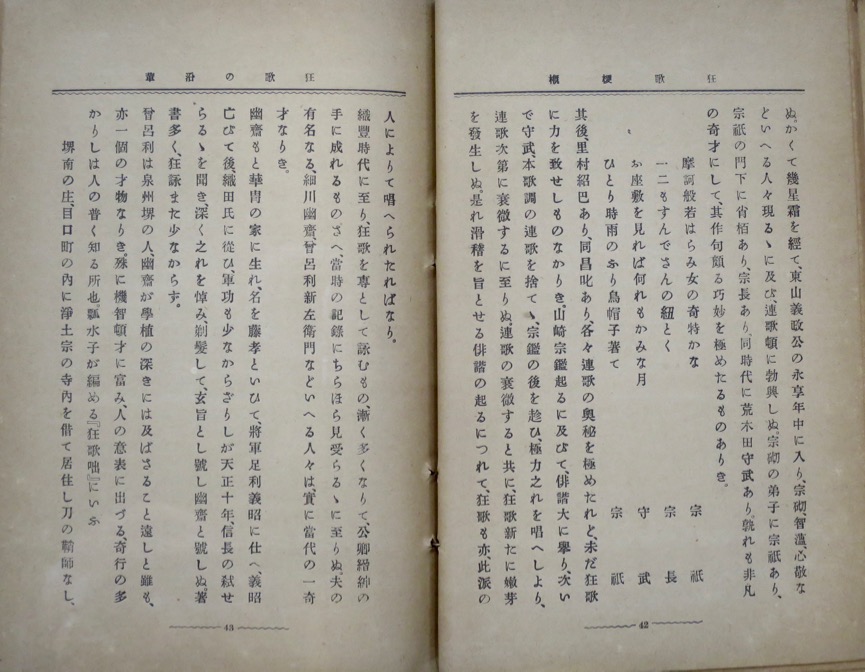 狂歌梗概
ぬ。かくて幾星霜を經て、東山義政公の永享年中に入り、宗砌、智蘊、心敬な
どいへる人々現るゝに及び、連歌頓に勃興しぬ。宗砌の弟子に宗祇あり、
宗祇の門下に肖栢あり、宗長あり。同時代に荒木田守武あり。孰れも非凡
の奇才にして、其作句頗る巧妙を極めたるものありき。
摩訶般若はらみ女の奇特かな 宗祇
一二もすんでさんの紐とく 宗長
お座敷を見れば何れもかみな月 守武
ひとり時雨のふり烏帽子著て 宗祇
其後、里村紹巴あり、同昌叱あり、各々連歌の奥秘を極めたれど、未だ狂歌
に力を致せしものなかりき。山崎宗鑑起るに及びて、俳諧大に擧り、次い
で守武、本歌調の連歌を捨てゝ、宗鑑の後を趁ひ、極力之れを唱へしより、
連歌次第に衰微するに至りぬ。連歌の衰微すると共に狂歌新たに嫩芽
を發生しぬ。是れ滑稽を旨とせる俳諧の起るにつれて、狂歌も亦、此派の
42
狂歌の沿革
人によりて唱へられたればなり。
織豐時代に至り、狂歌を專として詠むもの、漸く多くなりて、公卿縉紳の
手に成れるものさへ、當時の記錄にちらほら見受らるゝに至りぬ。夫の
有名なる、細川幽齋、曾呂利新左衞門などいへる人々は、實に當代の一奇
才なりき。
幽齋もと華冑の家に生れ、名を藤孝といひて、將軍足利義昭に仕へ、義昭
亡びて後、織田氏に從ひ、軍功も少なからざりしが、天正十年、信長の弑せ
らるゝを聞き、深く之れを悼み、剃髮して、玄旨とし號し幽齋と號しぬ。著
書多く、狂詠また少なからす。
曾呂利は泉州堺の人、幽齋が學植の深きには及ばざること遠しと雖も、
亦一個の才物なりき。殊に機智頓才に富み、人の意表に出づる、奇行の多
かりしは人の普く知る所也。瓢水子が編める『狂歌咄』にいふ
堺南の庄、目口町の內に淨土宗の寺內を借て居住し刀の鞘師なし、
43